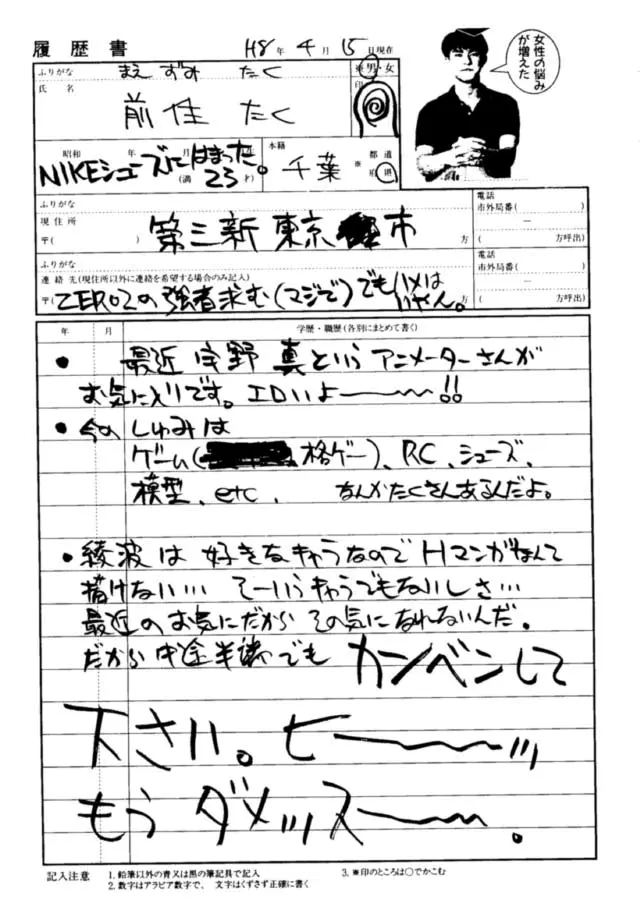 履歴書
H8年4月15日現在
女性の悩み
が増えた
ふりがな
まえずみ たく
※男・女
氏名
前住 たく
印
昭和 年 月
NIKEシューズにはまった。
(満23才)
本籍
千葉
※都道
府県
ふりがな
現住所
〒( )
第三新東京市
方
電話
市外局番( )
―
( 方呼出)
ふりがな
連絡先(現住所以外に連絡を希望する場合のみ記入)
〒( )
ZERO2の強者求む(マジで)でもハメは
いやん。
方
電話
市外局番( )
―
( 方呼出)
年 月 学歴・職歴(各別にまとめて書く)
• 最近宇野真というアニメーターさんが
お気に入りです。エロいよ〜〜!!
• 今のしゅみは
ゲーム( 格ゲー)、RC、シューズ、
模型、etc、 なんかたくさんあるんだよ。
• 綾波は好きなキャラなのでHマンガなんて
描けない… そーいうキャラでもないしさ…
最近のお気にだからその気になれないんだ。
だから中途半端でもカンベンして
下さい。ヒー〜〜ッ
もうダメッスー〜。
記入注意
1.鉛筆以外の青又は黒の筆記具で記入
2.数字はアラビア数字で、文字はくずさず正確に書く
3.※印のところは○でかこむ